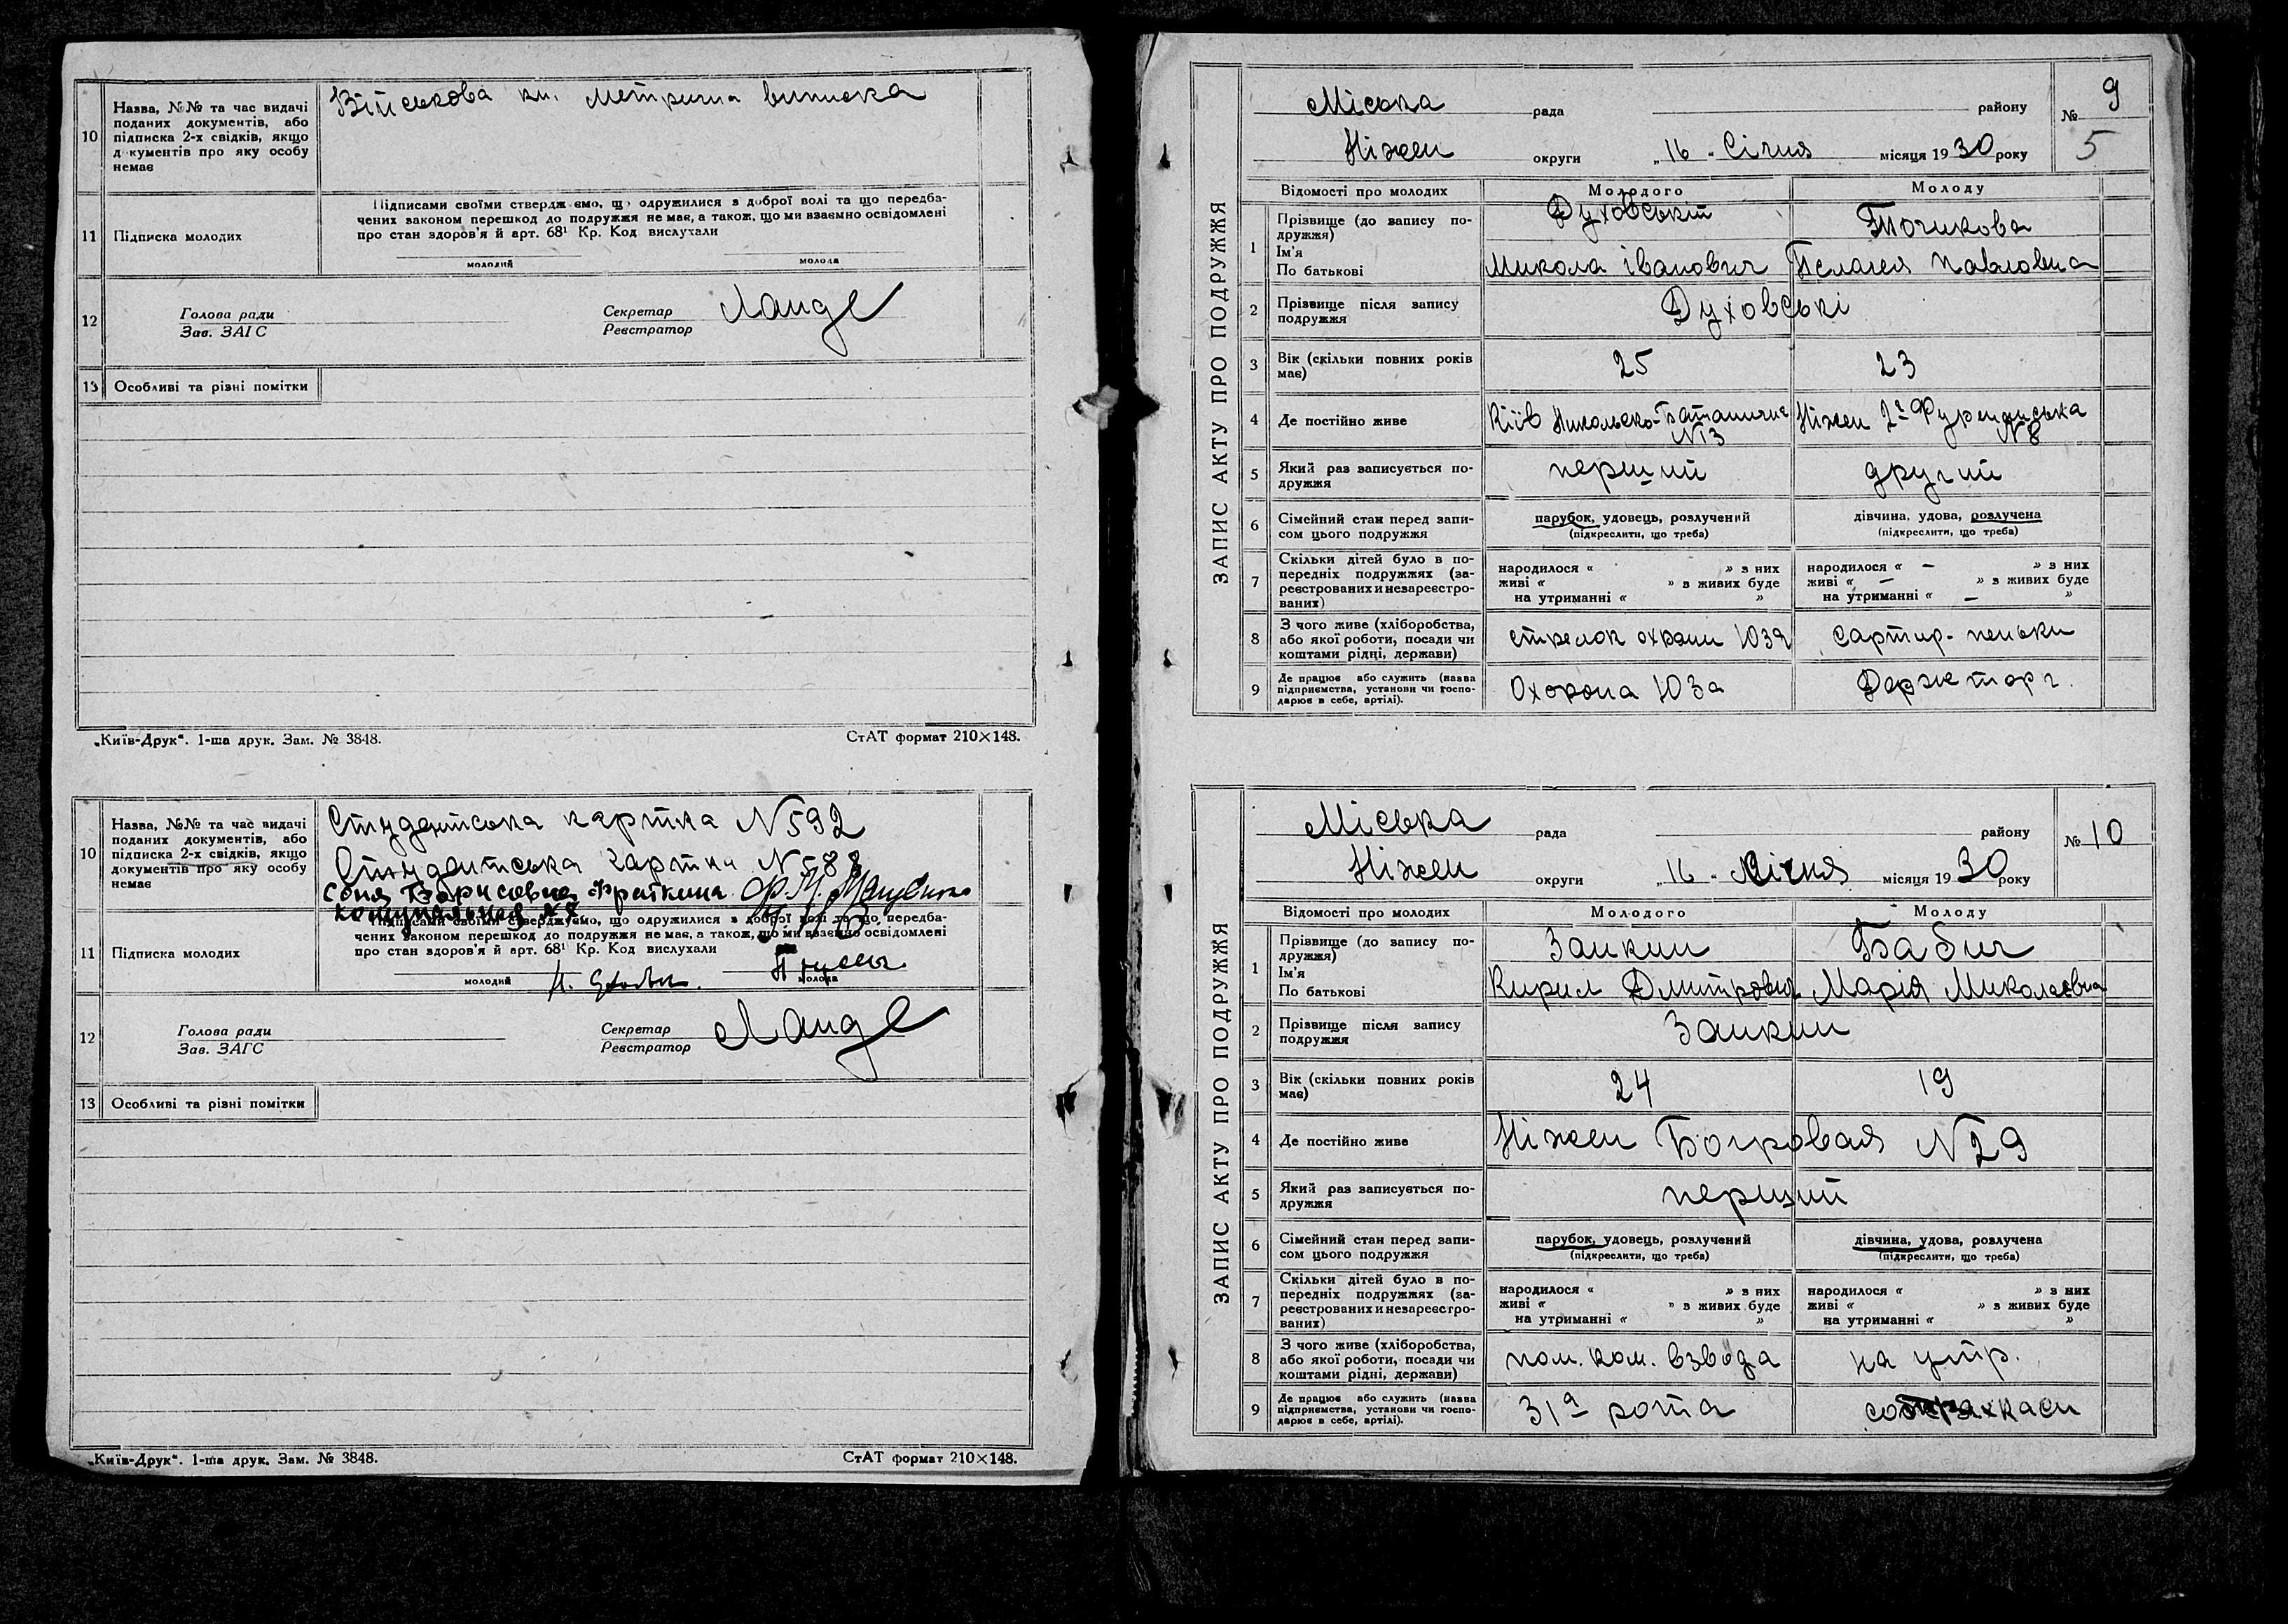 10
Назва, №№ та час видачі
поданих документів, або
підписка 2-х свідків, якщо
документів про яку особу
немає
Військова кн. Метрична виписка
11
Підписка молодих
Підписами своїми стверджуємо, що одружилися з доброї волі та що передба-
чених законом перешкод до подружжя не має, а також, що ми взаємно освідомлені
про стан здоров'я й арт. 68¹ Кр. Код вислухали
молодий
молода
12
Голова ради
Зав. ЗАГС
Секретар
Реєстратор
Ланде
13
Особливі та різні помітки
„Київ-Друк“. 1-ша друк. Зам. № 3848.
СтАТ формат 210×148.
10
Назва, №№ та час видачі
поданих документів, або
підписка 2-х свідків, якщо
документів про яку особу
немає
Студентська картка N 592
Студентська картка N 588
Соня Борисовна Фраткина
11
Підписка молодих
Підписами своїми стверджуємо, що одружилися з доброї волі та що передба-
чених законом перешкод до подружжя не має, а також, що ми взаємно освідомлені
про стан здоров'я й арт. 68¹ Кр. Код вислухали
молодий
молода
12
Голова ради
Зав. ЗАГС
Секретар
Реєстратор
Ланде
13
Особливі та різні помітки
„Київ-Друк“. 1-ша друк. Зам. № 3848.
СтАТ формат 210×148.
ЗАПИС АКТУ ПРО ПОДРУЖЖЯ
Міська рада району № 9
Ніжен округи „16„ Січня місяця 1930 року 5
Відомості про молодих Молодого Молоду
1
Прізвище (до запису по-
дружжя)
Ім'я
По батькові
Духовський Точикова
Микола Іванович Пелагея Павловна
2
Прізвище після запису
подружжя
Духовські
3
Вік (скільки повних років
має)
25 23
4
Де постійно живе
Київ Никольско-Ботанична Ніжен
N 13 N 8
5
Який раз записується по-
дружжя
перший другий
6
Сімейний стан перед запи-
сом цього подружжя
парубок, удовець, розлучений
(підкреслити, що треба)
дівчина, удова, розлучена
(підкреслити, що треба)
7
Скільки дітей було в по-
передніх подружжях (за-
реєстрованих и незареєстро-
ваних)
народилося « » з них
живі « » з живих буде
на утриманні « »
народилося « — » з них
живі « — » з живих буде
на утриманні « — »
8
З чого живе (хліборобства,
або якої роботи, посади чи
коштами рідні, держави)
стрелок охрани ЮЗа Сартир. пеньки
9
Де працює або служить (назва
підприємства, установи чи госпо-
дарює в себе, артілі).
Охорона ЮЗа Держторг.
ЗАПИС АКТУ ПРО ПОДРУЖЖЯ
Міська рада району № 10
Ніжен округи „16„ Січня місяця 1930 року
Відомості про молодих Молодого Молоду
1
Прізвище (до запису по-
дружжя)
Ім'я
По батькові
Заикин Бабич
Кирил Дмитрович Марія Миколаевна
2
Прізвище після запису
подружжя
Заикин
3
Вік (скільки повних років
має)
24 19
4
Де постійно живе
Ніжен N 29
5
Який раз записується по-
дружжя
перший
6
Сімейний стан перед запи-
сом цього подружжя
парубок, удовець, розлучений
(підкреслити, що треба)
дівчина, удова, розлучена
(підкреслити, що треба)
7
Скільки дітей було в по-
передніх подружжях (за-
реєстрованих и незареєстро-
ваних)
народилося « » з них
живі « » з живих буде
на утриманні « »
народилося « » з них
живі « » з живих буде
на утриманні « »
8
З чого живе (хліборобства,
або якої роботи, посади чи
коштами рідні, держави)
пом. ком. взвода на утр.
9
Де працює або служить (назва
підприємства, установи чи госпо-
дарює в себе, артілі).
31а рота